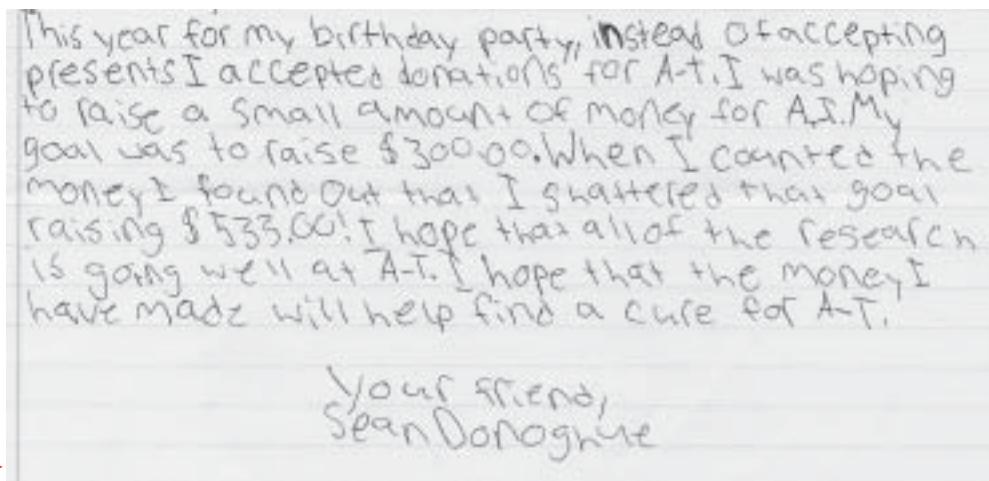 This year for my birthday party, instead of accepting
presents I accepted donations" for A-T. I was hoping
to raise a small amount of money for A.T. My
goal was to raise $300.00. When I counted the
money I found out that I shattered that goal
raising $533.00! I hope that all of the research
is going well at A-T. I hope that the money I
have made will help find a cure for A-T.
Your friend,
Sean Donoghue